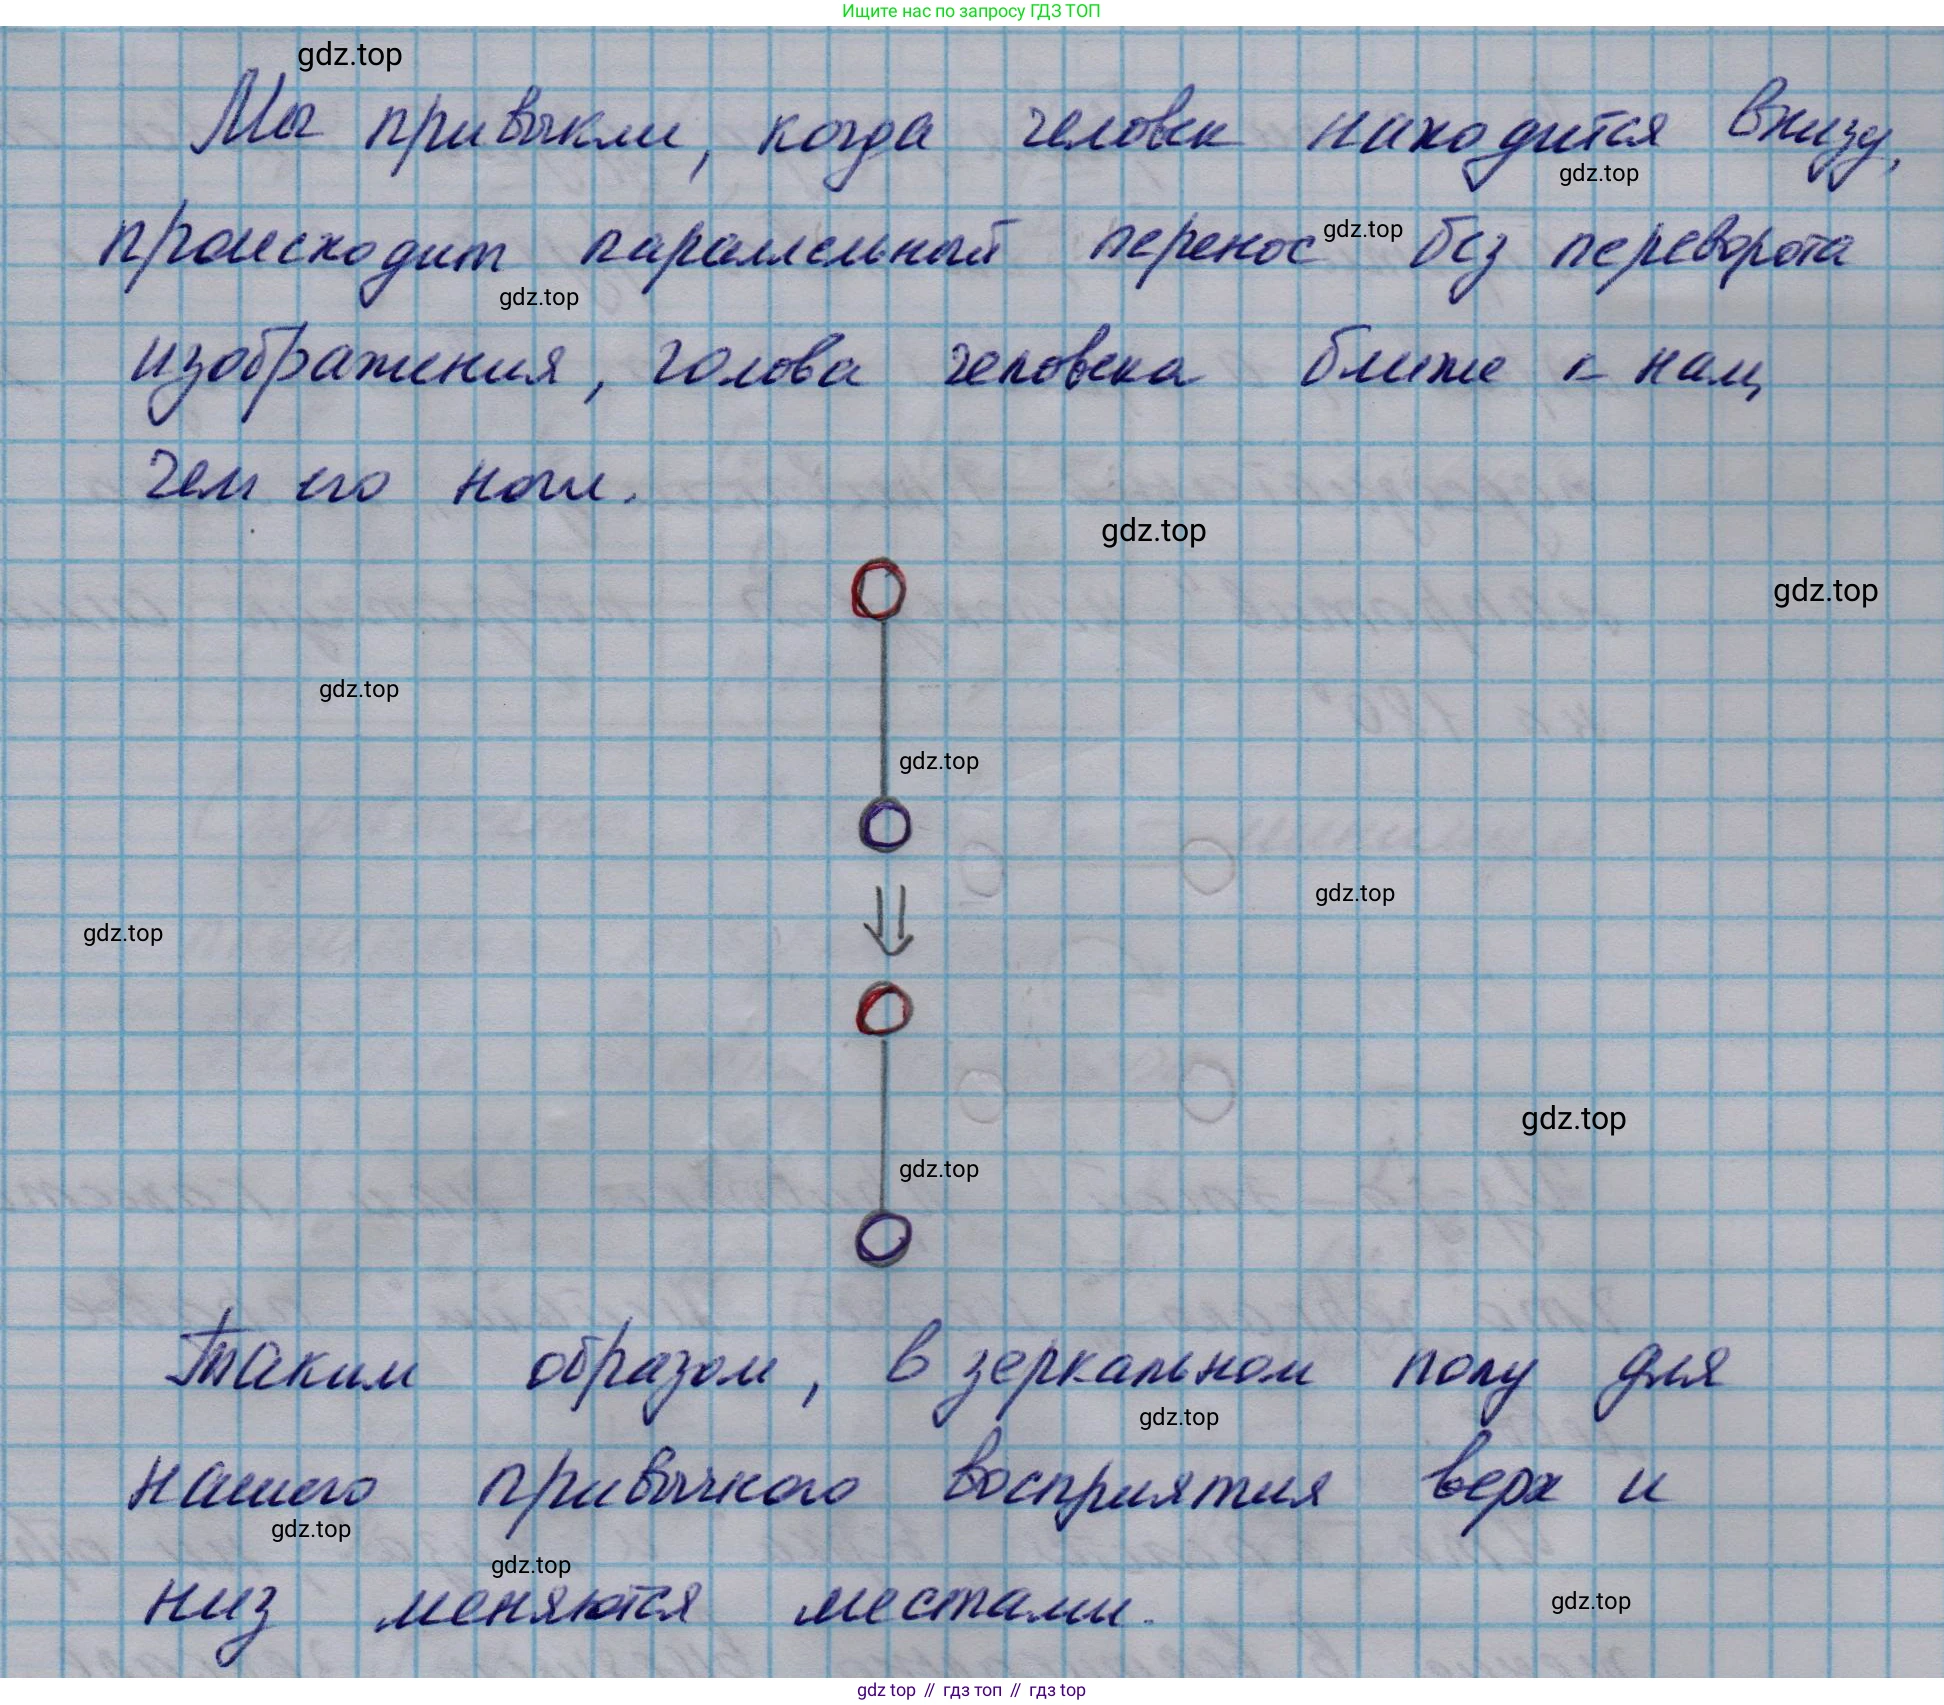 Ищите нас по запросу ГДЗ ТОП
gdz.top
Мы привыкли, когда человек находится внизу,
gdz.top
gdz.top
происходит параллельный перенос без переворота
gdz.top
изображения, голова человека ближе к нам,
чем его ноги.
gdz.top
gdz.top
gdz.top
gdz.top
gdz.top
gdz.top
gdz.top
gdz.top
Таким образом, в зеркальном полу для
gdz.top
нашего привычного восприятия верх и
gdz.top
gdz.top
низ меняются местами.
gdz.top
gdz top // гдз топ // гдз top